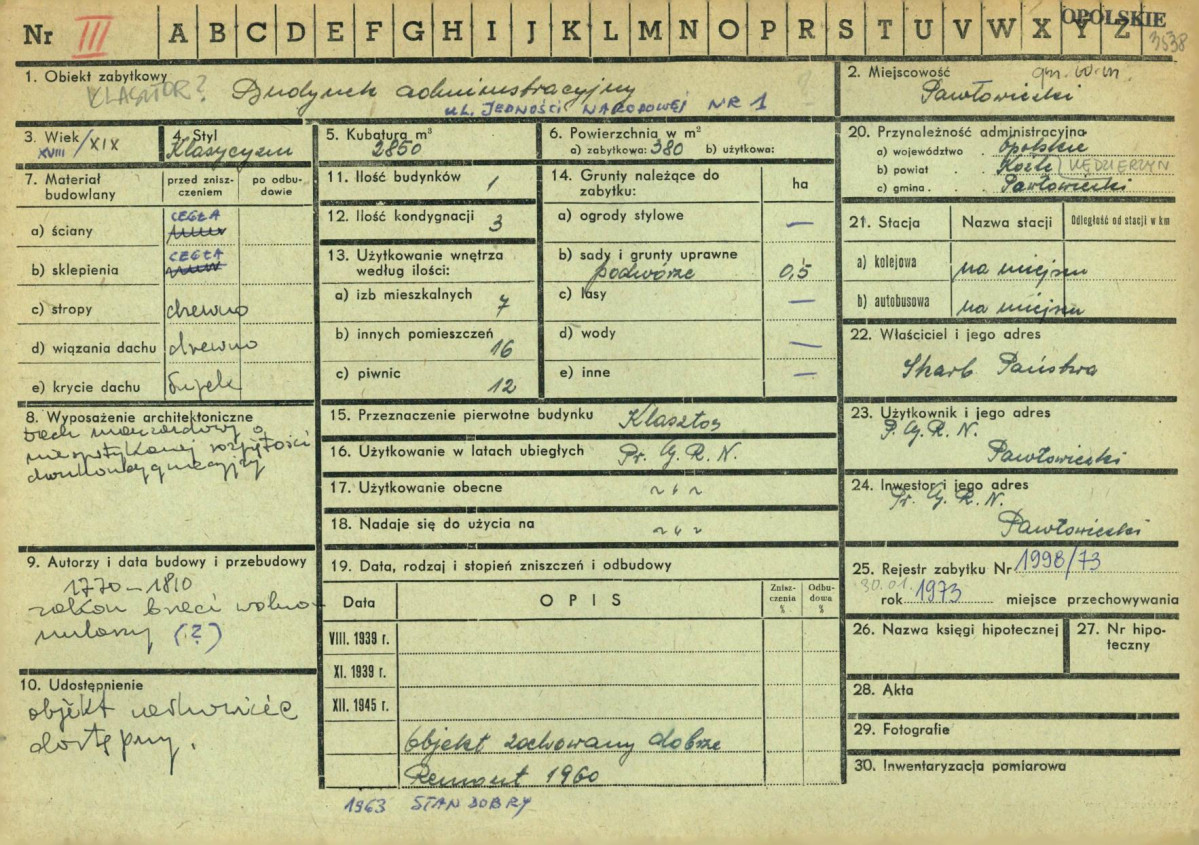 Nr III A B C D E F G H I J K L M N O P R S T U V W X Y Z
OPOLSKIE
3538
1. Obiekt zabytkowy
KLASZTOR? Budynek administracyjny
UL. JEDNOŚCI NARODOWEJ NR 1
2. Miejscowość
Pawłowiczki
3. Wiek
XVIII/XIX
4. Styl
Klasycyzm
5. Kubatura m³
2850
6. Powierzchnia w m²
a) zabytkowa: 380 b) użytkowa:
20. Przynależność administracyjna
a) województwo Opolskie
b) powiat Koźle KĘDZIERZYN
c) gmina Pawłowiczki
7. Materiał budowlany
przed znisz-
czeniem
po odbu-
dowie
a) ściany CEGŁA
b) sklepienia CEGŁA
c) stropy drewno
d) wiązania dachu drewno
e) krycie dachu
11. Ilość budynków 1
12. Ilość kondygnacji 3
13. Użytkowanie wnętrza
według ilości:
a) izb mieszkalnych 7
b) innych pomieszczeń 16
c) piwnic 12
14. Grunty należące do
zabytku:
ha
a) ogrody stylowe —
b) sady i grunty uprawne
podwórze 0,5
c) lasy —
d) wody —
e) inne —
21. Stacja Nazwa stacji Odległość od stacji w km
a) kolejowa na miejscu
b) autobusowa na miejscu
22. Właściciel i jego adres
Skarb Państwa
8. Wyposażenie architektoniczne
dach mansardowy o
niespotykanej rozpiętości
dwukondygnacyjny
15. Przeznaczenie pierwotne budynku Klasztor
16. Użytkowanie w latach ubiegłych Pr. G. R. N.
17. Użytkowanie obecne
18. Nadaje się do użycia na
23. Użytkownik i jego adres
P. G. R. N.
Pawłowiczki
24. Inwestor i jego adres
Pr. G. R. N.
Pawłowiczki
9. Autorzy i data budowy i przebudowy
1770-1810
zakon braci wolno-
mularzy (?)
19. Data, rodzaj i stopień zniszczeń i odbudowy
Data OPIS
Znisz-
czenia
%
Odbu-
dowa
%
VIII. 1939 r.
XI. 1939 r.
XII. 1945 r.
Objekt zachowany dobrze
Remont 1960
1963 STAN DOBRY
25. Rejestr zabytku Nr 1998/73
30.01.
rok 1973 miejsce przechowywania
26. Nazwa księgi hipotecznej
27. Nr hipo-
teczny
10. Udostępnienie
objekt całkowicie
dostępny.
28. Akta
29. Fotografie
30. Inwentaryzacja pomiarowa